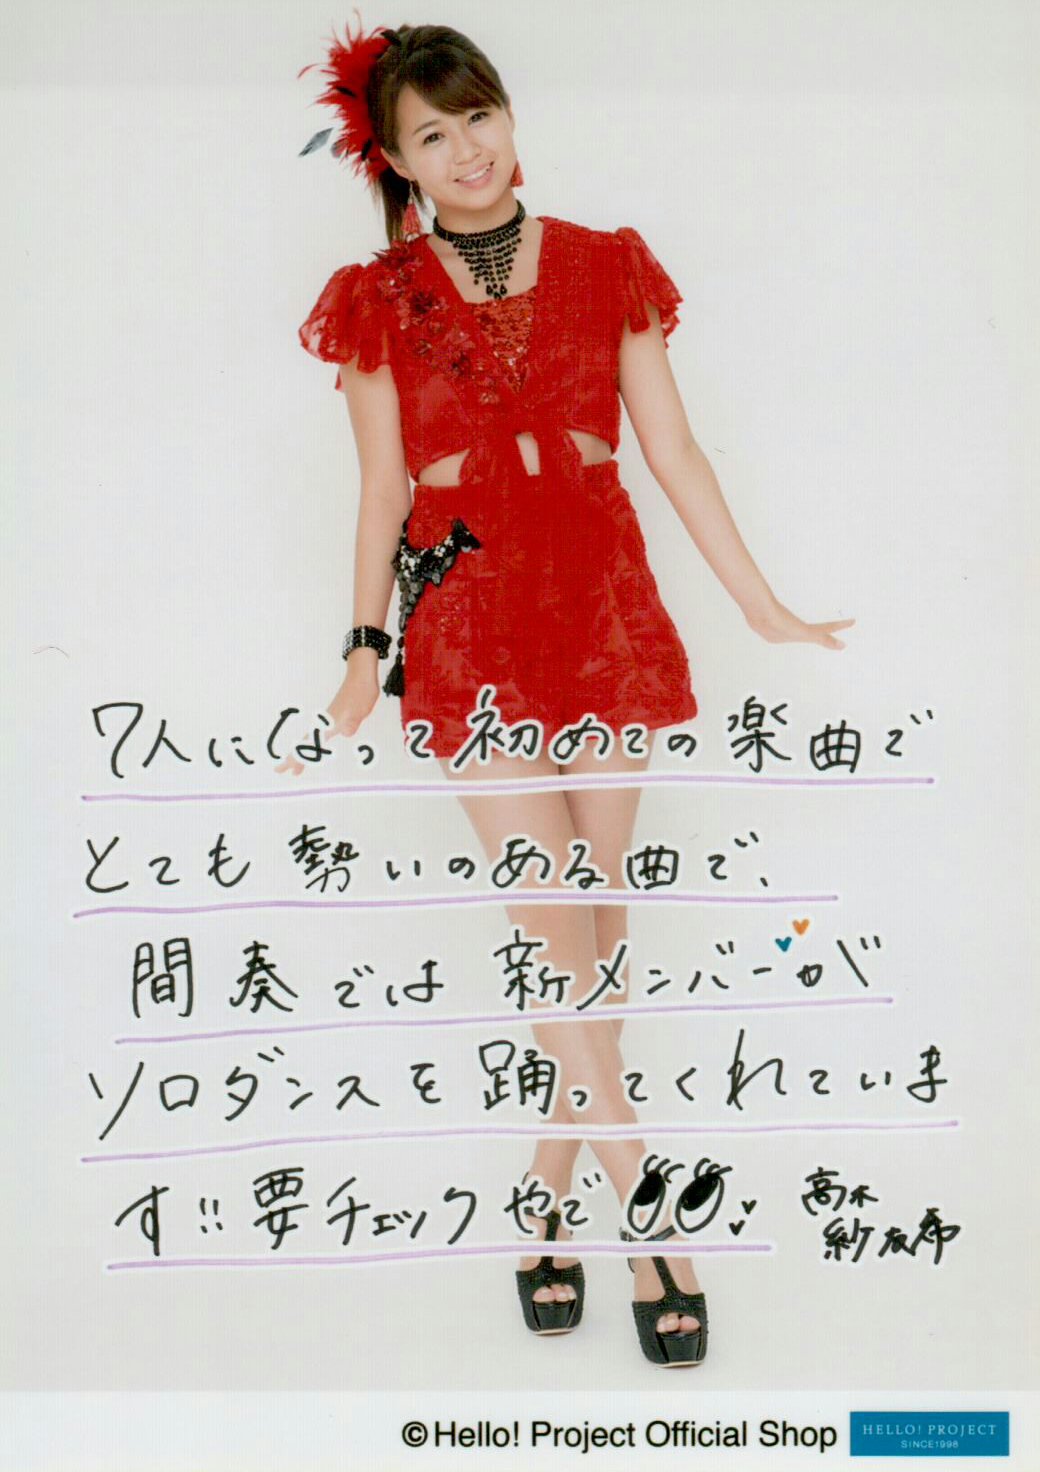 7人になって初めての楽曲で
とても勢いのある曲で、
間奏では新メンバーが
ソロダンスを踊ってくれていま
す!!要チェックやで
高木
紗友希
©Hello! Project Official Shop
HELLO! PROJECT
SINCE1998